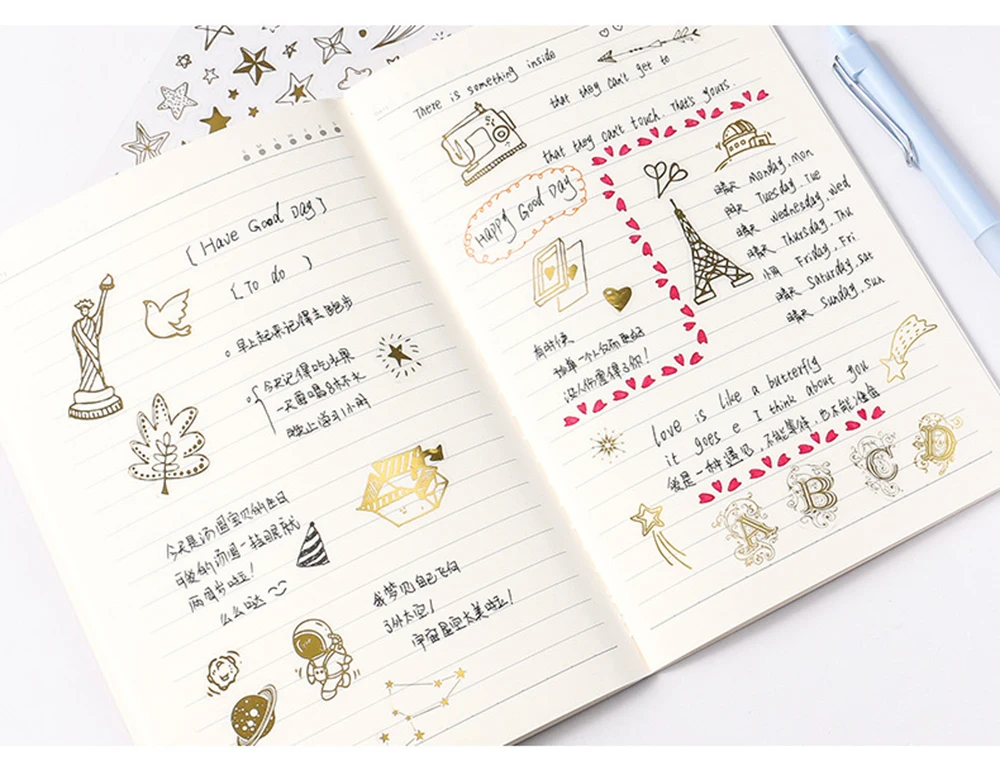 S M T W T F S
[Have Good Day]
[To do]
早上起来记得去跑步
今天记得吃水果
一天要喝8杯水
晚上学习1小时
今天是汤圆宝贝的生日
可爱的汤圆一转眼就
两周岁啦!
么么哒
我梦见自己飞向
了外太空!
宇宙星空太美啦!
There is something inside
that they can't get to
that they can't touch. That's yours.
Happy Good Day
晴天 Monday. Mon
阴天 Tuesday. Tue
晴天 Wednesday. Wed
晴天 Thursday. Thu
小雨 Friday. Fri
晴天 Saturday. Sat
晴天 Sunday. Sun
有时候
没人你值得了你!
love is like a butterfly
it goes e I think about you
爱是一种遇见,不能等待,也不能
A B C D